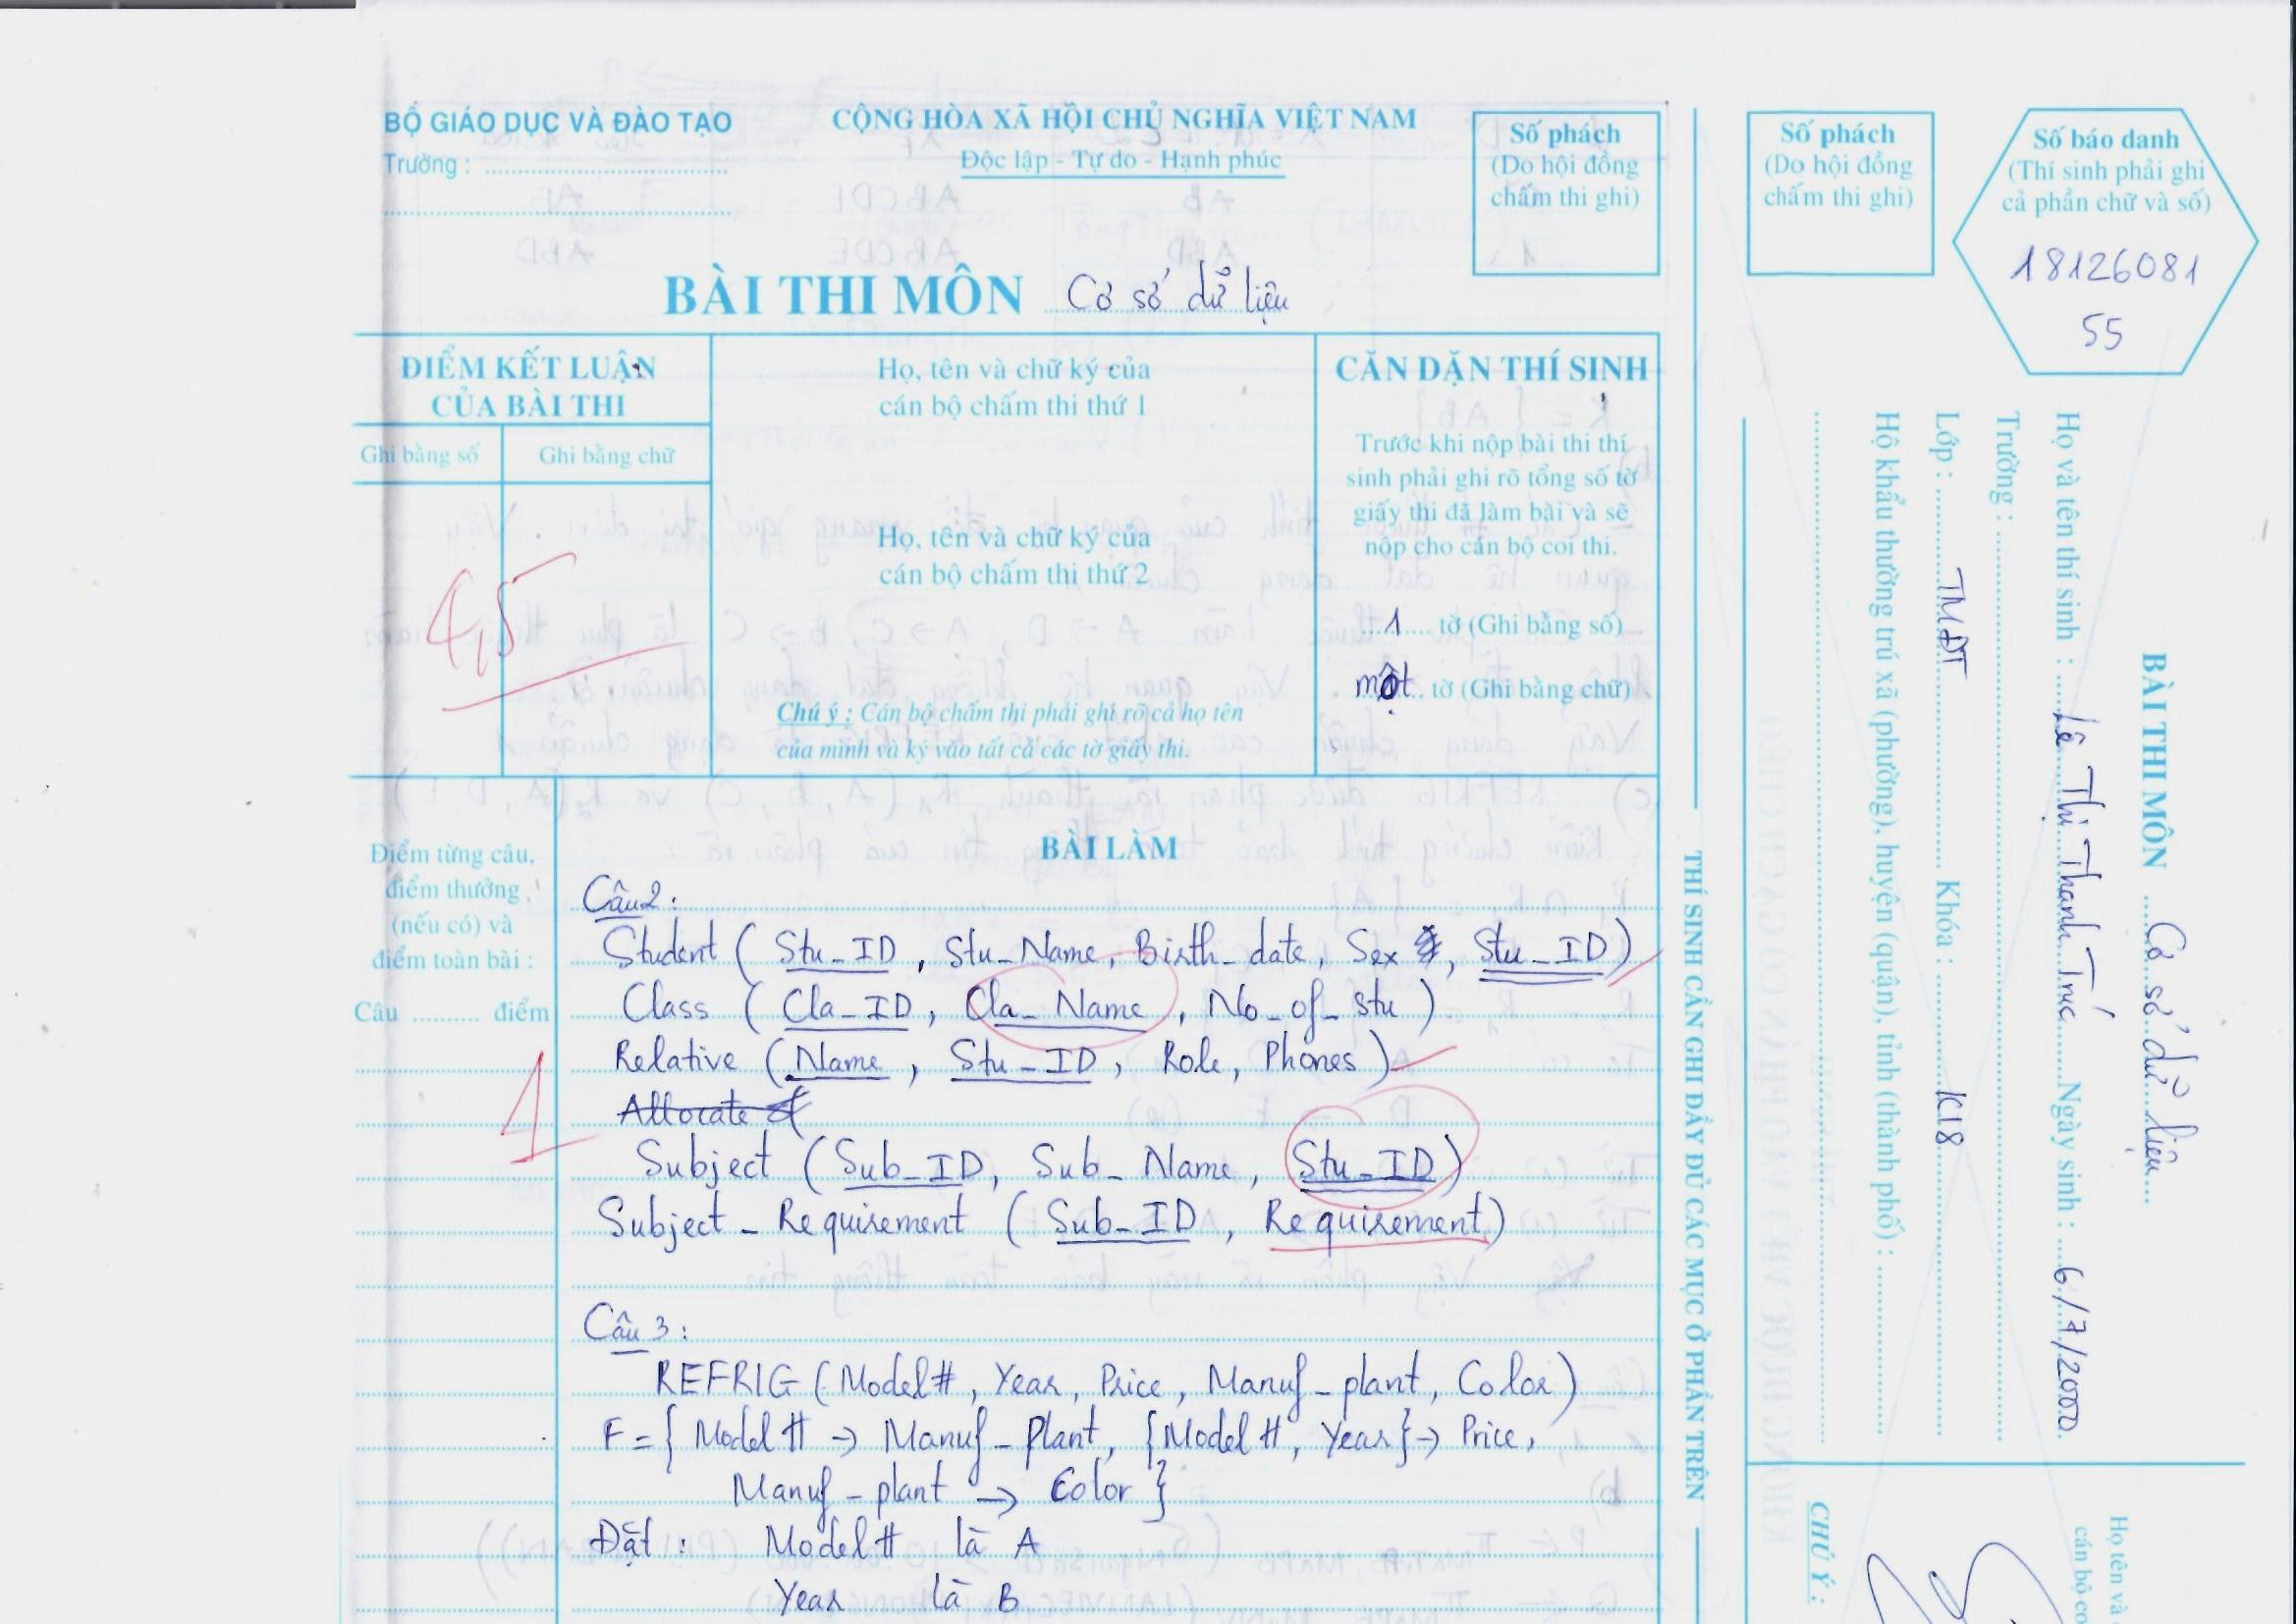 BỘ GIÁO DỤC VÀ ĐÀO TẠO
Trường :
CỘNG HÒA XÃ HỘI CHỦ NGHĨA VIỆT NAM
Độc lập - Tự do - Hạnh phúc
Số phách
(Do hội đồng
chấm thi ghi)
BÀI THI MÔN Cơ sở dữ liệu
ĐIỂM KẾT LUẬN
CỦA BÀI THI
Ghi bằng số
Ghi bằng chữ
4,5
Họ, tên và chữ ký của
cán bộ chấm thi thứ 1
Họ, tên và chữ ký của
cán bộ chấm thi thứ 2
Chú ý : Cán bộ chấm thi phải ghi rõ cả họ tên
của mình và ký vào tất cả các tờ giấy thi.
CĂN DẶN THÍ SINH
Trước khi nộp bài thi thí
sinh phải ghi rõ tổng số tờ
giấy thi đã làm bài và sẽ
nộp cho cán bộ coi thi.
1 tờ (Ghi bằng số)
một tờ (Ghi bằng chữ)
Điểm từng câu,
điểm thưởng
(nếu có) và
điểm toàn bài :
Câu .......... điểm
1
BÀI LÀM
Câu 2 :
Student ( Stu_ID , Stu_Name, Birth_date, Sex , Stu_ID )
Class ( Cla_ID , Cla_Name , No_of_stu )
Relative ( Name , Stu_ID , Role, Phones )
Allocate
Subject ( Sub_ID, Sub_Name , Stu_ID )
Subject_Requirement ( Sub_ID , Requirement )
Câu 3 :
REFRIG ( Model# , Year , Price , Manuf_plant, Color )
F = { Model # → Manuf_Plant, {Model #, Year} → Price,
Manuf_plant → Color }
Đặt : Model # là A
Year là B
THÍ SINH CẦN GHI ĐẦY ĐỦ CÁC MỤC Ở PHẦN TRÊN
Số phách
(Do hội đồng
chấm thi ghi)
Số báo danh
(Thí sinh phải ghi
cả phần chữ và số)
18126081
55
BÀI THI MÔN Cơ sở dữ liệu
Họ và tên thí sinh : Lê Thị Thanh Trúc Ngày sinh : 6/7/2000
Trường :
Lớp : TMĐT Khóa : K18
Hộ khẩu thường trú xã (phường), huyện (quận), tỉnh (thành phố) :
Họ tên và
cán bộ co
CHÚ Ý :